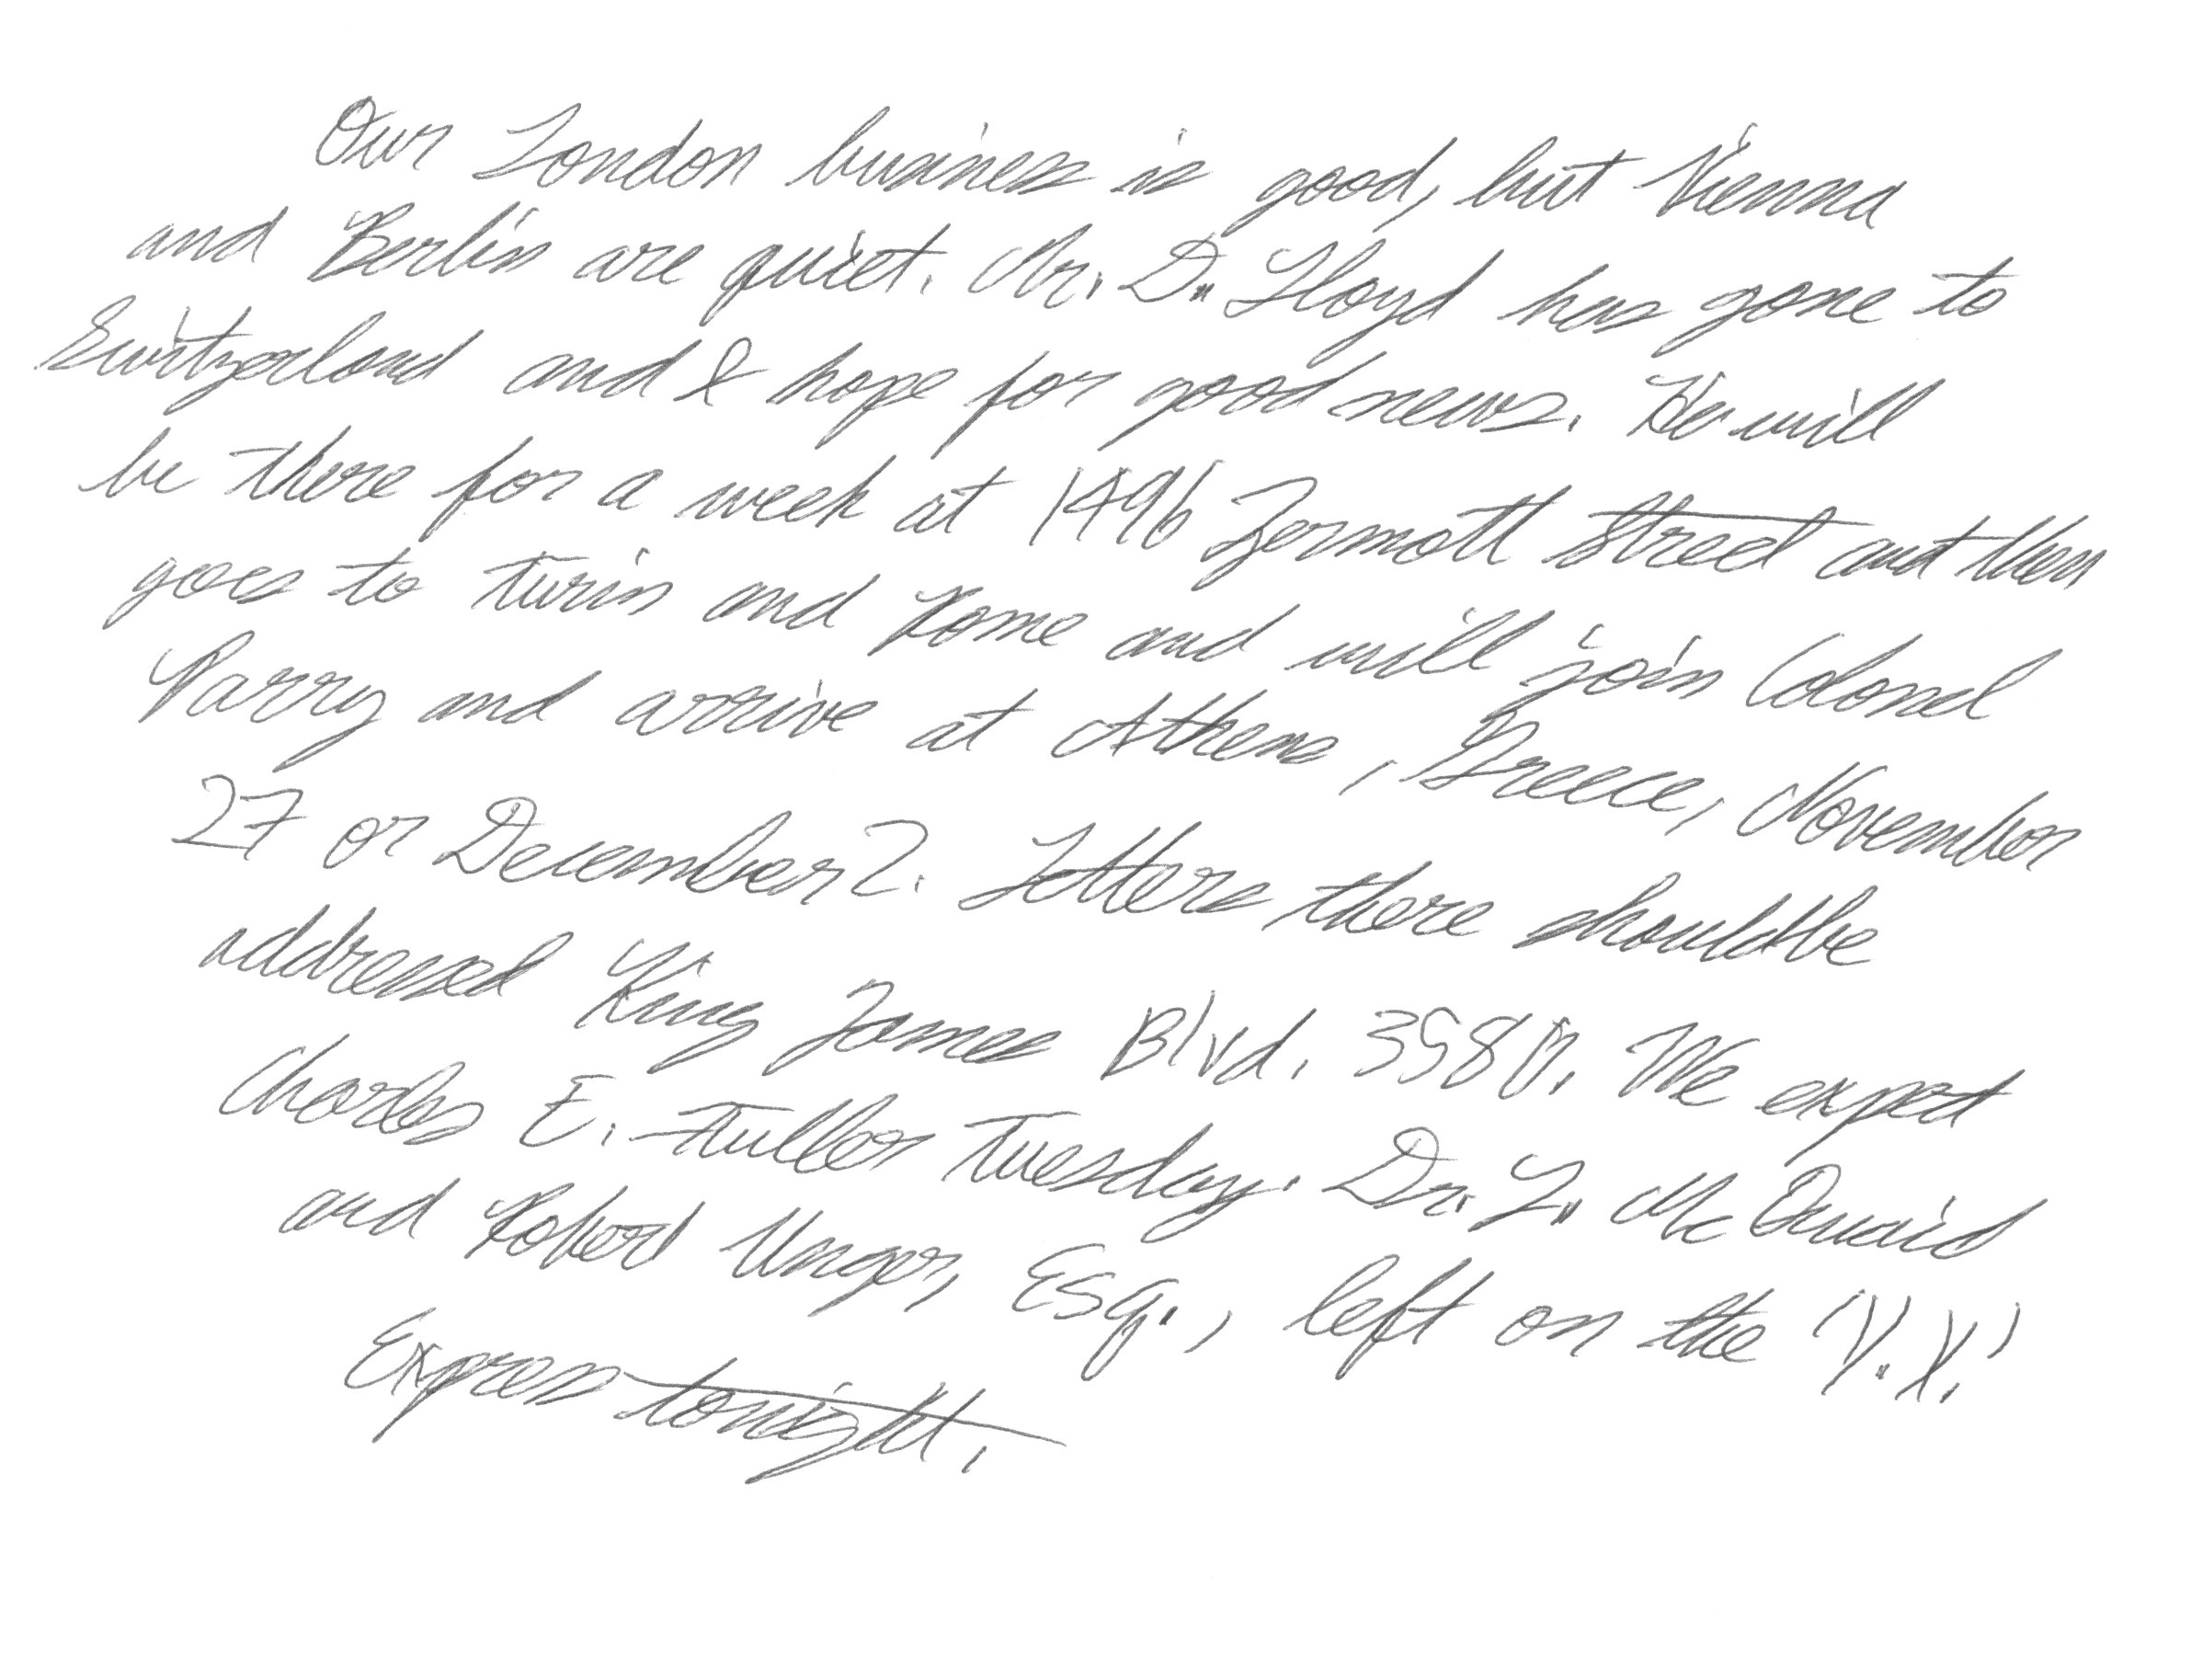 Our London business is good, but Vienna
and Berlin are quiet. Mr. D. Lloyd has gone to
Switzerland and I hope for good news. He will
be there for a week at 1496 Zermott Street and then
goes to Turin and Rome and will join Colonel
Parry and arrive at Athens, Greece, November
27 or December 2. Letters there should be
addressed King James Blvd. 3580. We expect
Charles E. Fuller Tuesday. Dr. L. McQuaid
and Robert Unger, Esq., left on the 'Y.X.'
Express tonight.